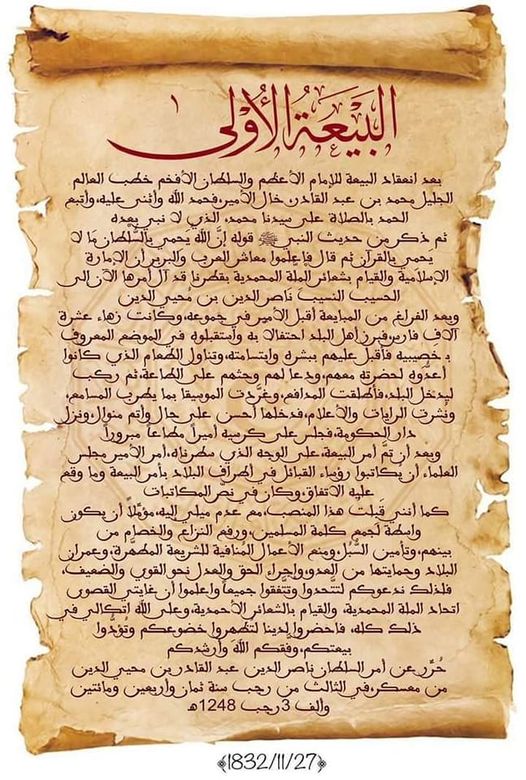 البَيْعَةُ الأُولى ١
بعد انعقاد البيعة للإمام الأعظم والسلطان الأفخم خطب العالم
الجليل محمد بن عبد القادر، خال الأمير، فحمد الله وأثنى عليه، وأتبع
الحمد بالصلاة على سيدنا محمد، الذي لا نبي بعده
ثم ذكر من حديث النبي ﷺ قوله إنَّ الله يحمي بالسُّلطان مَا لا
يُحمى بالقرآن ثم قال فاعلموا معاشر العرب والبربر أن الإمارة
الإسلامية والقيام بشعائر الملة المحمدية بقطرنا قد آل أمرها الآن إلى
الحسيب النسيب ناصر الدين بن مُحيي الدين
وبعد الفراغ من المبايعة أقبل الأمير في جموعه، وكانت زهاء عشرة
آلاف فارس، فبرز أهل البلد احتفالا به واستقبلوه في الموضع المعروف
بـ خصيبيه فأقبل عليهم ببشره وابتسامته، وتناول الطعام الذي كانوا
أعدّوه لحضرته معهم، ودعا لهم وحثهم على الطاعة، ثم ركب
ليدخل البلد، فأطلقت المدافع، وغرّدت الموسيقا بما يطرب المسامع،
ونُشرت الرايات والأعلام، فدخلها أحسن على حال وأتم منوال، ونزل
دار الحكومة، فجلس على كرسيه أميراً مطاعاً مبروراً
وبعد أن تمَّ أمر البيعة، على الوجه الذي سطرناه، أمر الأمير مجلس
العلماء أن يُكاتبوا رؤساء القبائل في أطراف البلاد بأمر البيعة وما وقع
عليه الاتفاق، وكان في نص المكاتبات
كما أنني قَبِلتُ هذا المنصب، مع عدم ميلي إليه، مؤمّلاً أن يكون
واسطة لجمع كلمة المسلمين، ورفع النزاع والخصام من
بينهم، وتأمين السُّبُل، ومنع الأعمال المنافية للشريعة المطهرة، وعمران
البلاد وحمايتها من العدو، وإجراء الحق والعدل نحو القوي والضعيف،
فلذلك ندعوكم لتتّحدوا وتتّفقوا جميعاً واعلموا أن غايتي القصوى
اتحاد الملة المحمدية، والقيام بالشعائر الأحمدية، وعلى الله اتكالي في
ذلك كله، فاحضروا لدينا لتظهروا خضوعكم وتُؤدُّوا
بيعتكم، وفّقكم الله وأرشدكم
حُرّر عن أمر السلطان ناصر الدين عبد القادر بن محيي الدين
من معسكر، في الثالث من رجب سنة ثمان وأربعين ومائتين
وألف 3 رجب 1248هـ
﴿1832/11/27﴾